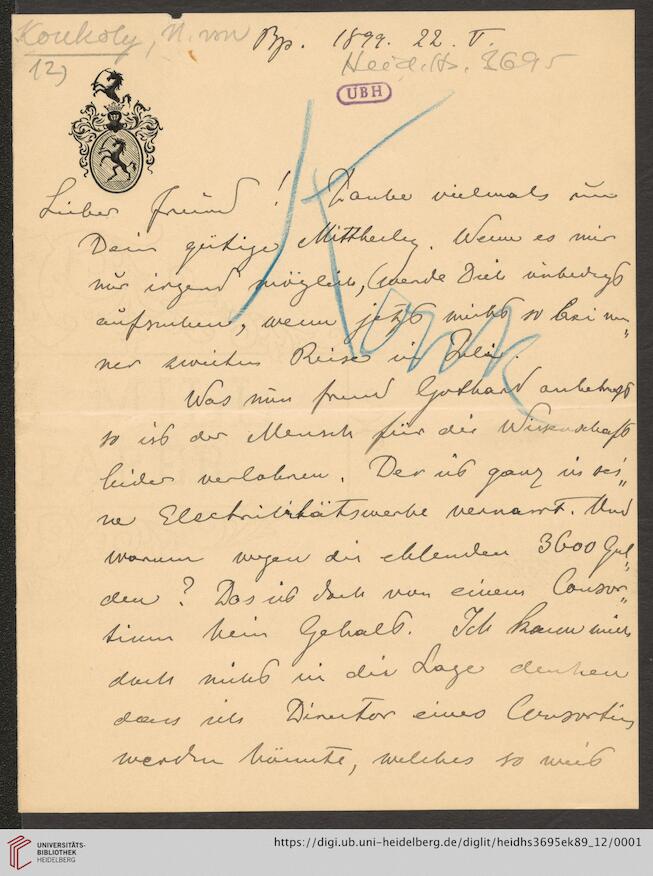 Konkoly, N. von Bp. 1899. 22. V.
12) Heid. Hs. 3695
UBH
Konk
Lieber Freund! Danke vielmals um
Dein gütige Mittheilg. Wenn es mir
nur irgend möglich, werde Dich unbedingt
aufsuchen, wenn jetzt nicht so bei mei„
ner zweiten Reise in
Was nun Freund Gothard anbetrifft
so ist der Mensch für die Wissenschaft
leider verlohren. Der ist ganz in sei„
ne Electricitätswerke vernarrt. Und
warum wegen die ehlenden 3600 Gul„
den? Das ist doch von einem Consor„
tium kein Gehalt. Ich kann mich
doch nicht in die Lage denken
dass ich Director eines Consortiums
werden könnte, welches so weit
UNIVERSITÄTS-
BIBLIOTHEK
HEIDELBERG
https://digi.ub.uni-heidelberg.de/diglit/heidhs3695ek89_12/0001